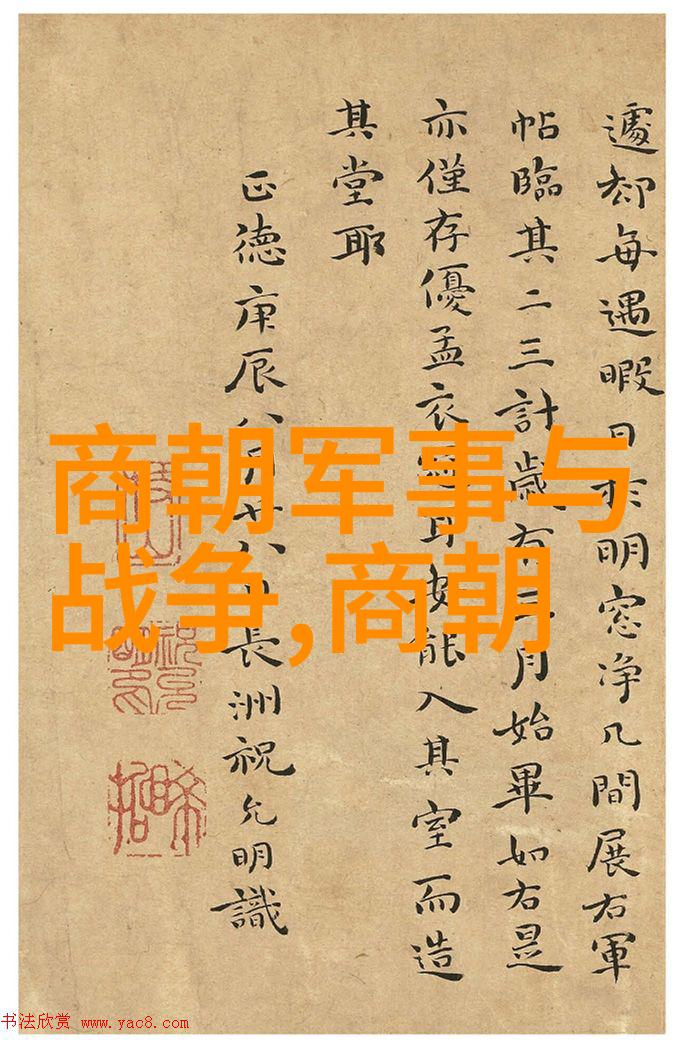 遽却每遇暇日於明窓净几間展右軍
帖臨其二三計歲有三月始畢如右是
亦僅存優孟衣冠耳安能入其室而造
其堂耶
正德庚辰八月廿八日長洲祝允明識
商朝军事与
战争,商朝
书法欣赏 www.yac8.com